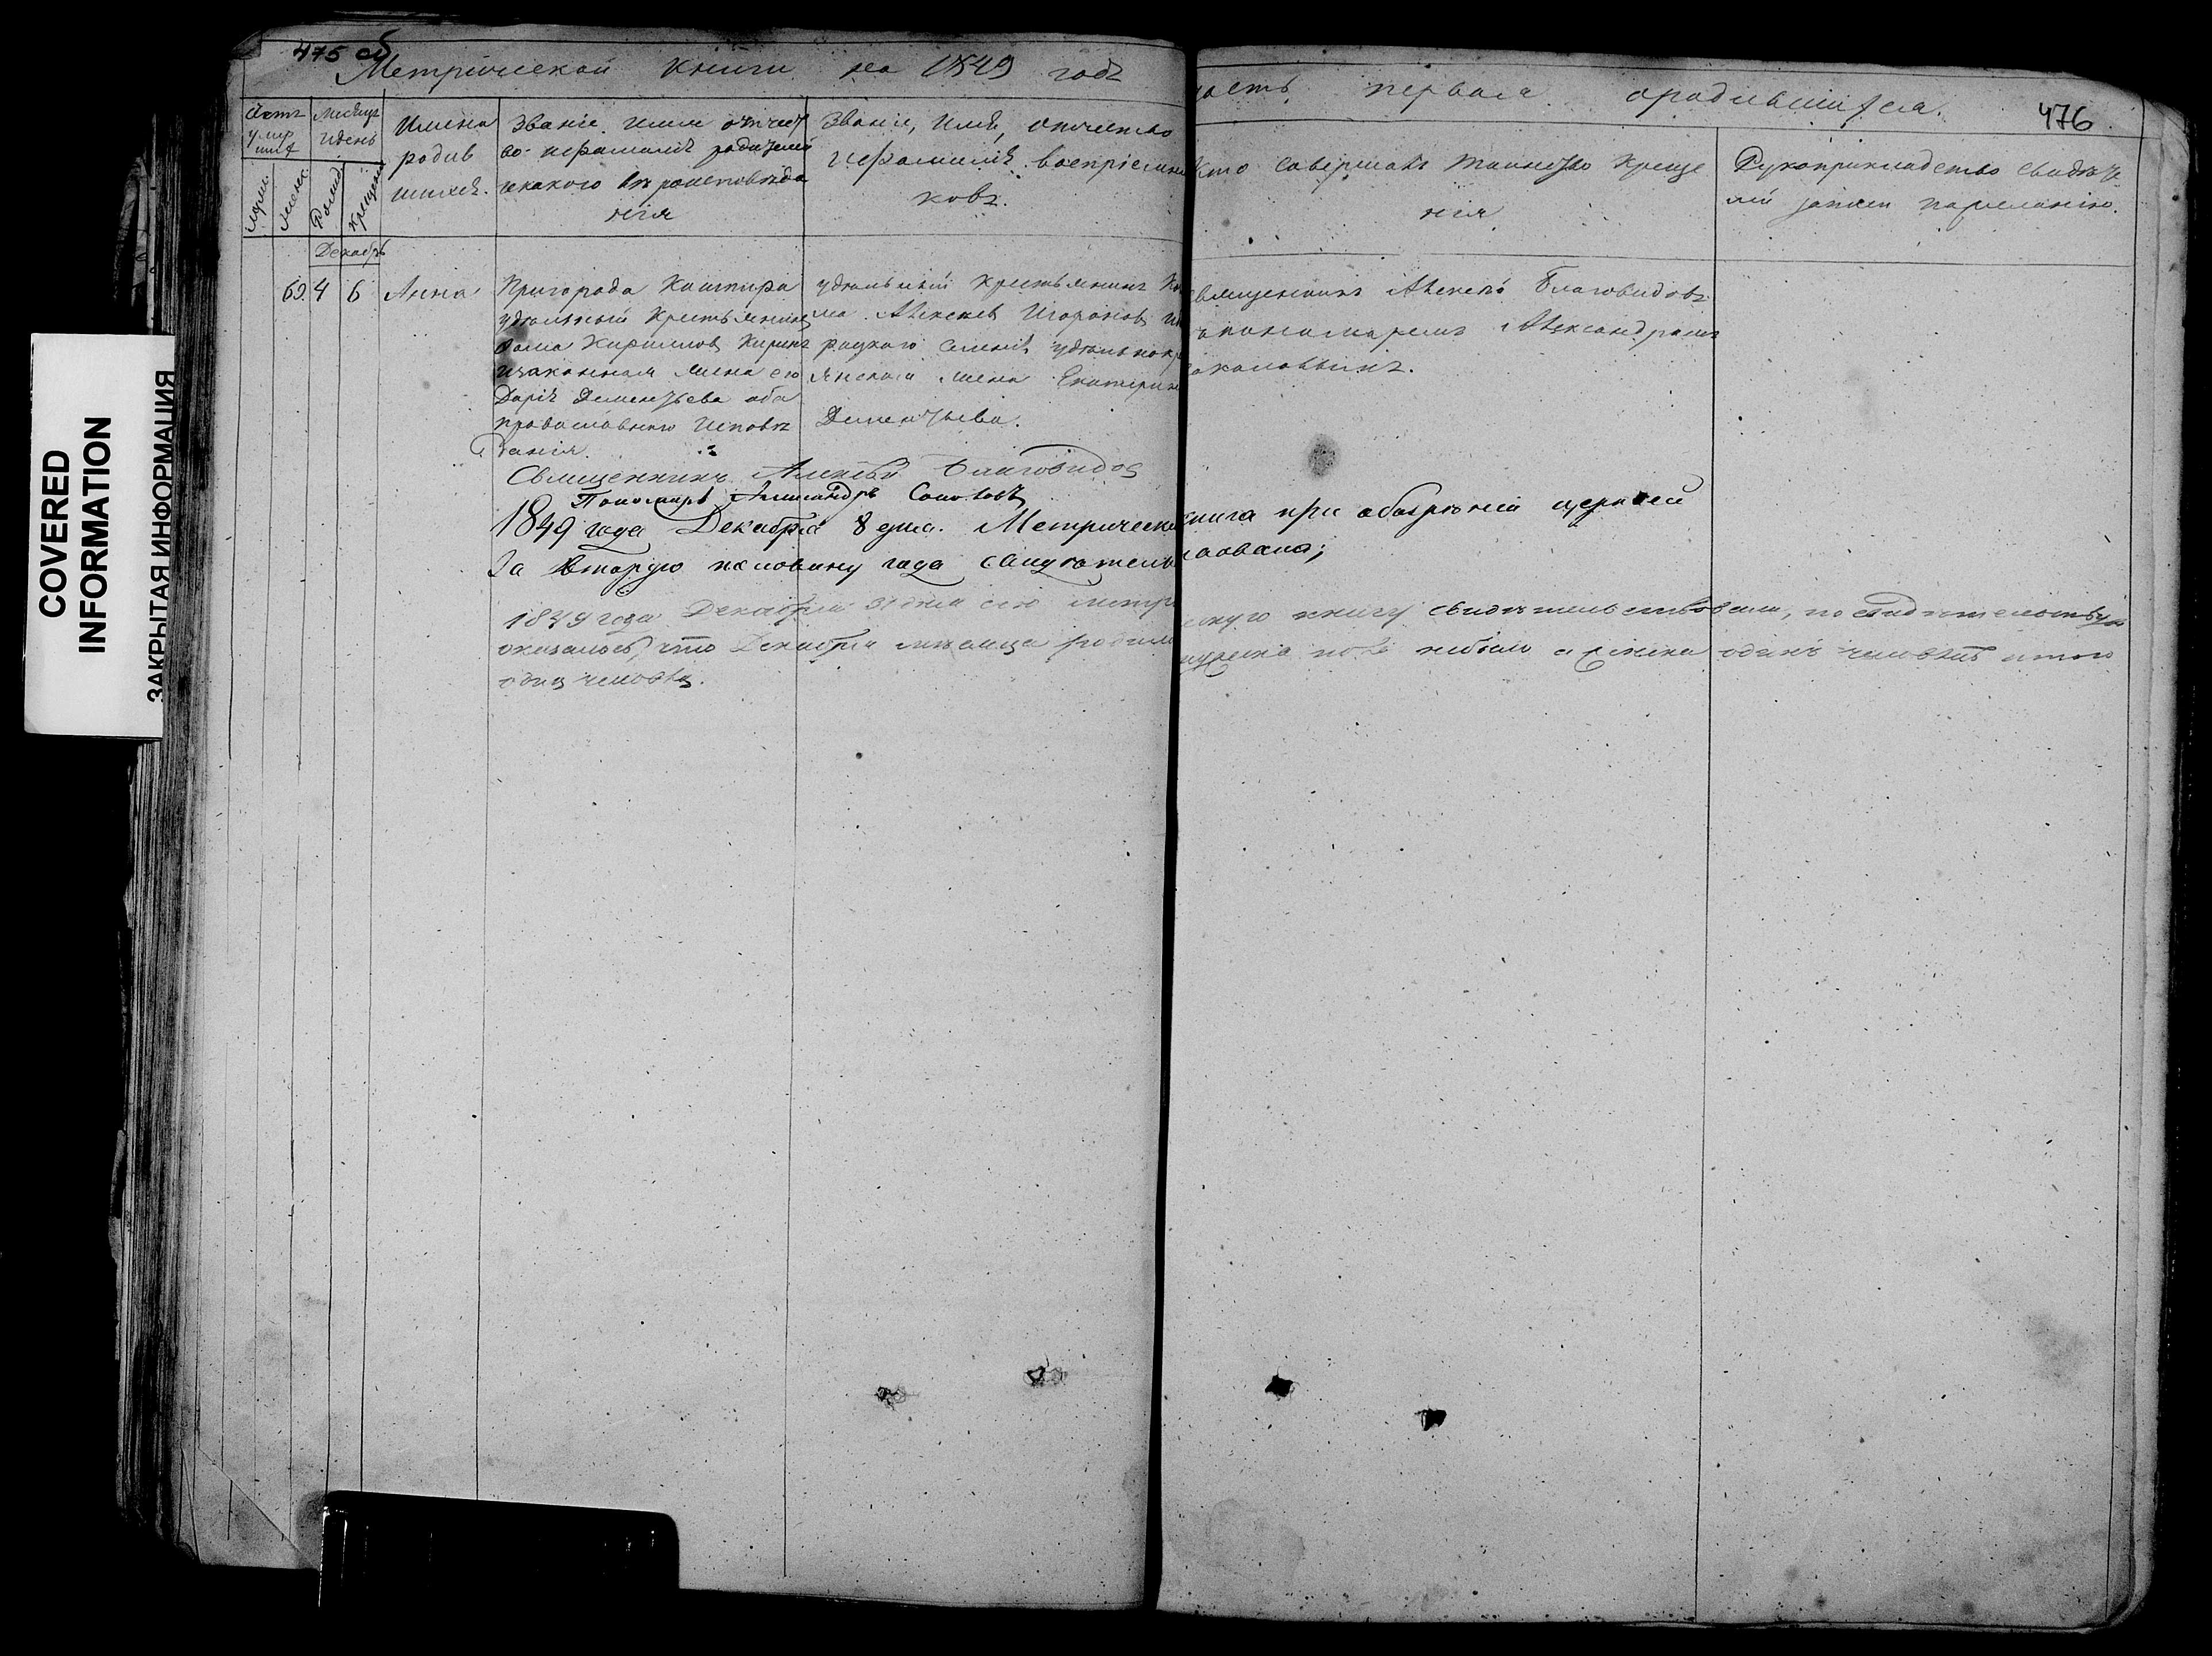 475 об
Метрической книги на 1849 годъ
часть первая ородившихся.
476
Мѣсяцъ
идень
Имена
родив
шихся.
Званіе. имя отчест
во. ифамилія родителей
икакого вѣроисповѣда
нія
Званіе, имя, отчество
ифамилія воспріемни
ковъ.
Кто совершалъ таинство креще
нія
Рукоприкладство свидѣте
лей записи пожеланію.
муж.
женс.
Рожд.
Крещен.
Декабрь
69. 4 6 Анна
Пригорода
удѣльный крестьянинъ
Кирилловъ
изаконная жена его
Дарія Дементьева оба
православнаго исповѣ
данія.
удѣльный крестьянинъ
Алексѣй
удѣльнокр
янская жена Екатерина
Дементьева.
священникъ Алексѣй Благовидовъ
спономаремъ Александромъ
Соколовымъ.
Священникъ Алексѣй Благовидов
Пономарь Александръ Соколовъ
1849 года Декабря 8 дня. Метрическая книга при обозрѣніи церквей
За вторую половину года свидѣтельствована;
1849 года Декабря 31 дня сію метрическую книгу свидѣтельствовали, по свидѣтельству
оказалось, что Декабря мѣсяца родилось мужеска пола небыло а женска одинъ человѣкъ итого
один человѣк.
COVERED
INFORMATION
ЗАКРЫТАЯ ИНФОРМАЦИЯ